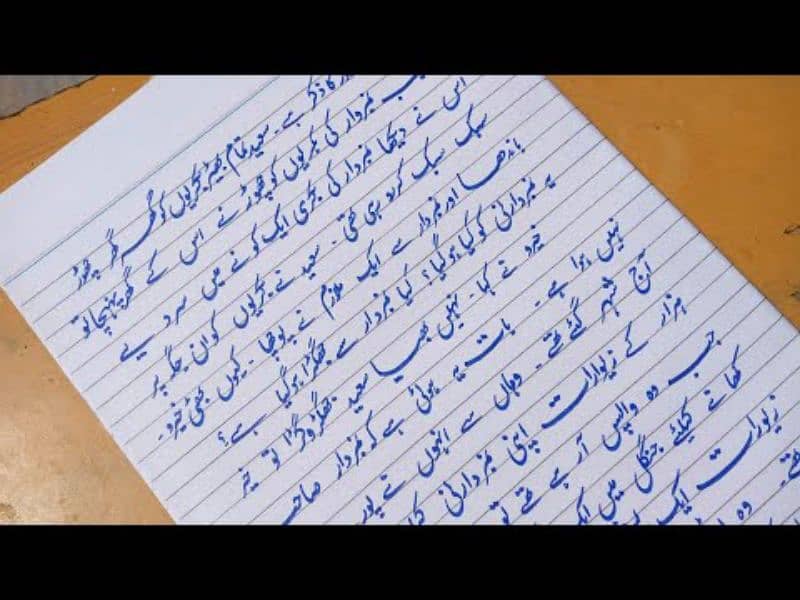 کا ذکر ہے۔ سعید تمام بھیڑ بکریوں کو گھر گھر چھوڑ
نمبردار کی بکریوں کو چھوڑنے اس کے گھر پہنچا تو
اس نے دیکھا نمبردار کی بکری ایک کونے میں سر دیے
سبک سبک کر رو رہی تھی۔ سعید نے بکریوں کو ان جگہ پر
باندھا اور نمبردار سے ایک ملازم نے پوچھا۔ کیوں بھئی خیرو۔
یہ نمبردارنی کو کیا ہو گیا؟ کیا نمبردار سے جھگڑا ہو گیا ہے؟
خیرو نے کہا۔ نہیں بھیا سعید جھگڑا وگڑا تو خیر
نہیں ہوا ہے۔ بات یہ ہوئی ہے کہ نمبردار صاحب
آج شہر گئے تھے۔ وہاں سے انہوں نے پور
ہزار کے زیورات اپنی نمبردارنی
جب وہ واپس آ رہے تھے تو
کھانے کیلئے جنگل میں ایک
زیورات ایک
تھے۔ وہ